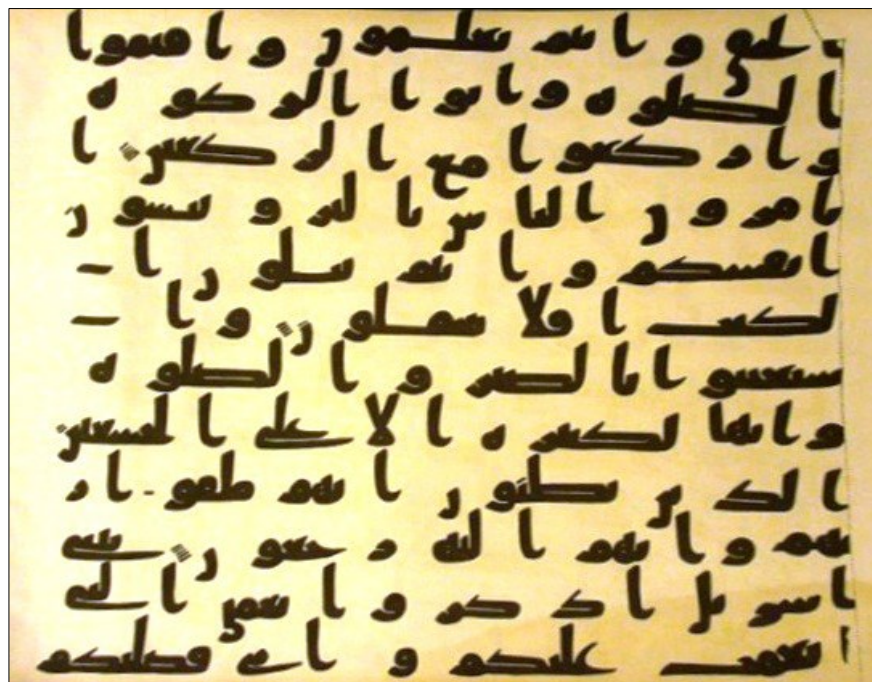 لحق وانتم تعلمون واقيموا
الصلوه واتوا الزكوه
واركعوا مع الركعين ا
تامرون الناس بالبر وتنسون
انفسكم وانتم تتلون ا
لكتب افلا تعقلون وا
ستعينوا بالصبر والصلوه
وانها لكبيره الا على الخشعين
الذين يظنون انهم ملقوا ر
بهم وانهم اليه رجعون يبنى
اسريل اذكروا نعمتى التى
انعمت عليكم وانى فضلتكم